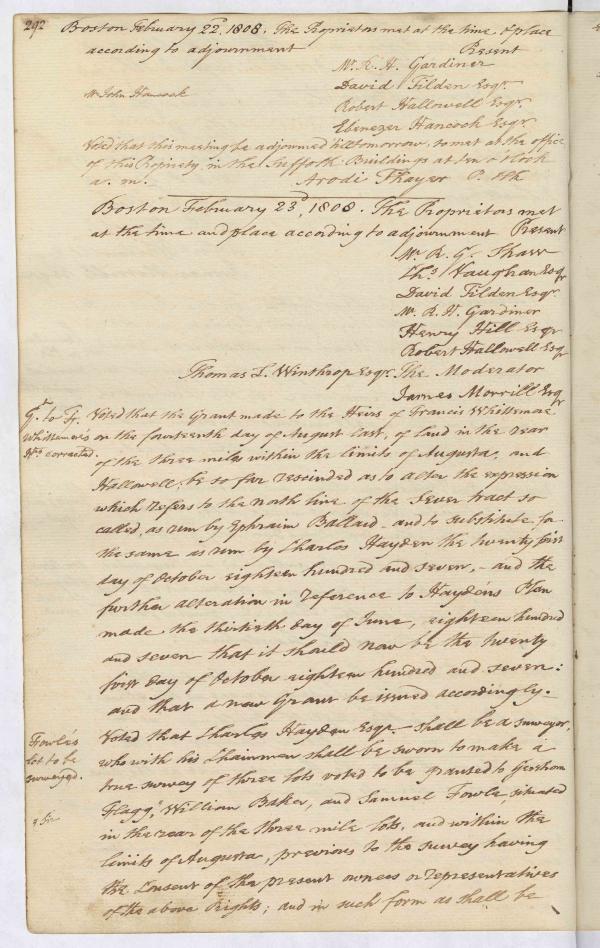 292 Boston February 22d. 1808. The Proprietors met at the time & place
according to adjournment Present
Mr. R. H. Gardiner
David Tilden Esqr.
Mr John Hancock
Robert Hallowell Esqr.
Ebenezer Hancock Esqr
Voted that this meeting be adjourned till tomorrow, to met at the office
of this Propriety in the Suffolk Buildings at ten o'Clock
a. m. Arodi Thayer P. Clk
Boston February 23d, 1808. The Proprietors met
at the time and place according to adjournment Present
Mr. R. G. Shaw
Chs. Vaughan Esqr
David Tilden Esqr.
Mr. R. H. Gardiner
Henry Hill Esqr
Robert Hallowell Esqr
Thomas L. Winthrop Esqr. The Moderator
James Morrill Esqr
Gt. to Fr.
Whittemore's
Hrs corrected.
Voted that the Grant made to the Heirs of Francis Whittemore
on the fourteenth day of August last, of land in the rear
of the three miles within the limits of Augusta, and
Hallowell; be so far rescinded as to alter the expression
which refers to the North line of the Sever tract so
called, as run by Ephraim Ballard - and to substitute for
the same as run by Charles Hayden the twenty first
day of October eighteen hundred and seven, - and the
further alteration in reference to Hayden's Plan
made the thirtieth day of June, eighteen hundred
and seven that it should now be the twenty
first day of October eighteen hundred and seven:
and that a new Grant be issued accordingly.
Fowle's
lot to be
surveyed.
Voted that Charles Hayden Esqr. - shall be a surveyor,
who with his Chainmen shall be sworn to make a
true survey of three lots voted to be granted to Gershom
Flagg, William Baker, and Samuel Fowle, situated
in the rear of the three mile lots, and within the
limits of Augusta, previous to the survey having
the Consent of the present owners or representatives
of the above Rights; and in such form as shall be